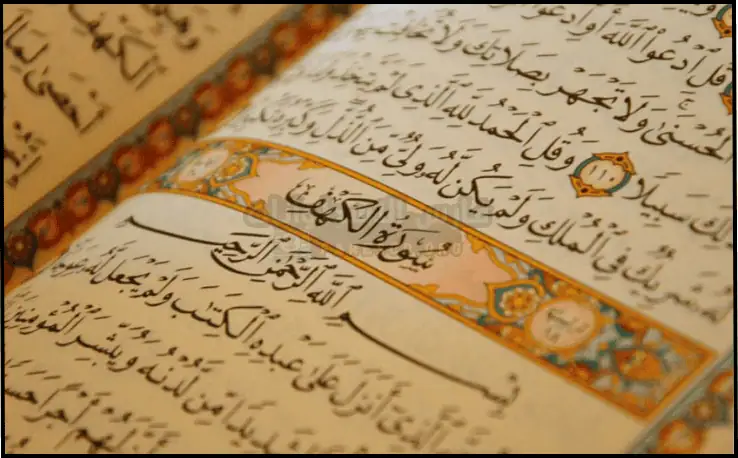 قُلِ ٱدْعُوا۟ ٱللَّهَ أَوِ ٱدْعُوا۟
ٱلْحُسْنَىٰ ۚ وَلَا تَجْهَرْ بِصَلَاتِكَ وَلَا تُخَافِتْ
ذَٰلِكَ سَبِيلًا ١١٠ وَقُلِ ٱلْحَمْدُ لِلَّهِ ٱلَّذِى لَمْ يَتَّخِذْ وَلَدًا
لَّهُۥ شَرِيكٌ فِى ٱلْمُلْكِ وَلَمْ يَكُن لَّهُۥ وَلِىٌّ مِّنَ ٱلذُّلِّ وَكَبِّرْهُ تَكْبِيرًا
سُورَةُ الكَهْفِ
بِسْمِ ٱللَّهِ ٱلرَّحْمَٰنِ ٱلرَّحِيمِ
ٱلَّذِىٓ أَنزَلَ عَلَىٰ عَبْدِهِ ٱلْكِتَٰبَ وَلَمْ يَجْعَل لَّهُۥ عِوَجَا
شَدِيدًا مِّن لَّدُنْهُ وَيُبَشِّرَ ٱلْمُؤْمِنِينَ
أَنَّ لَهُمْ أَجْرًا حَسَنًا
ٱلْكَهْفِ
أَحْصَىٰ لِمَا